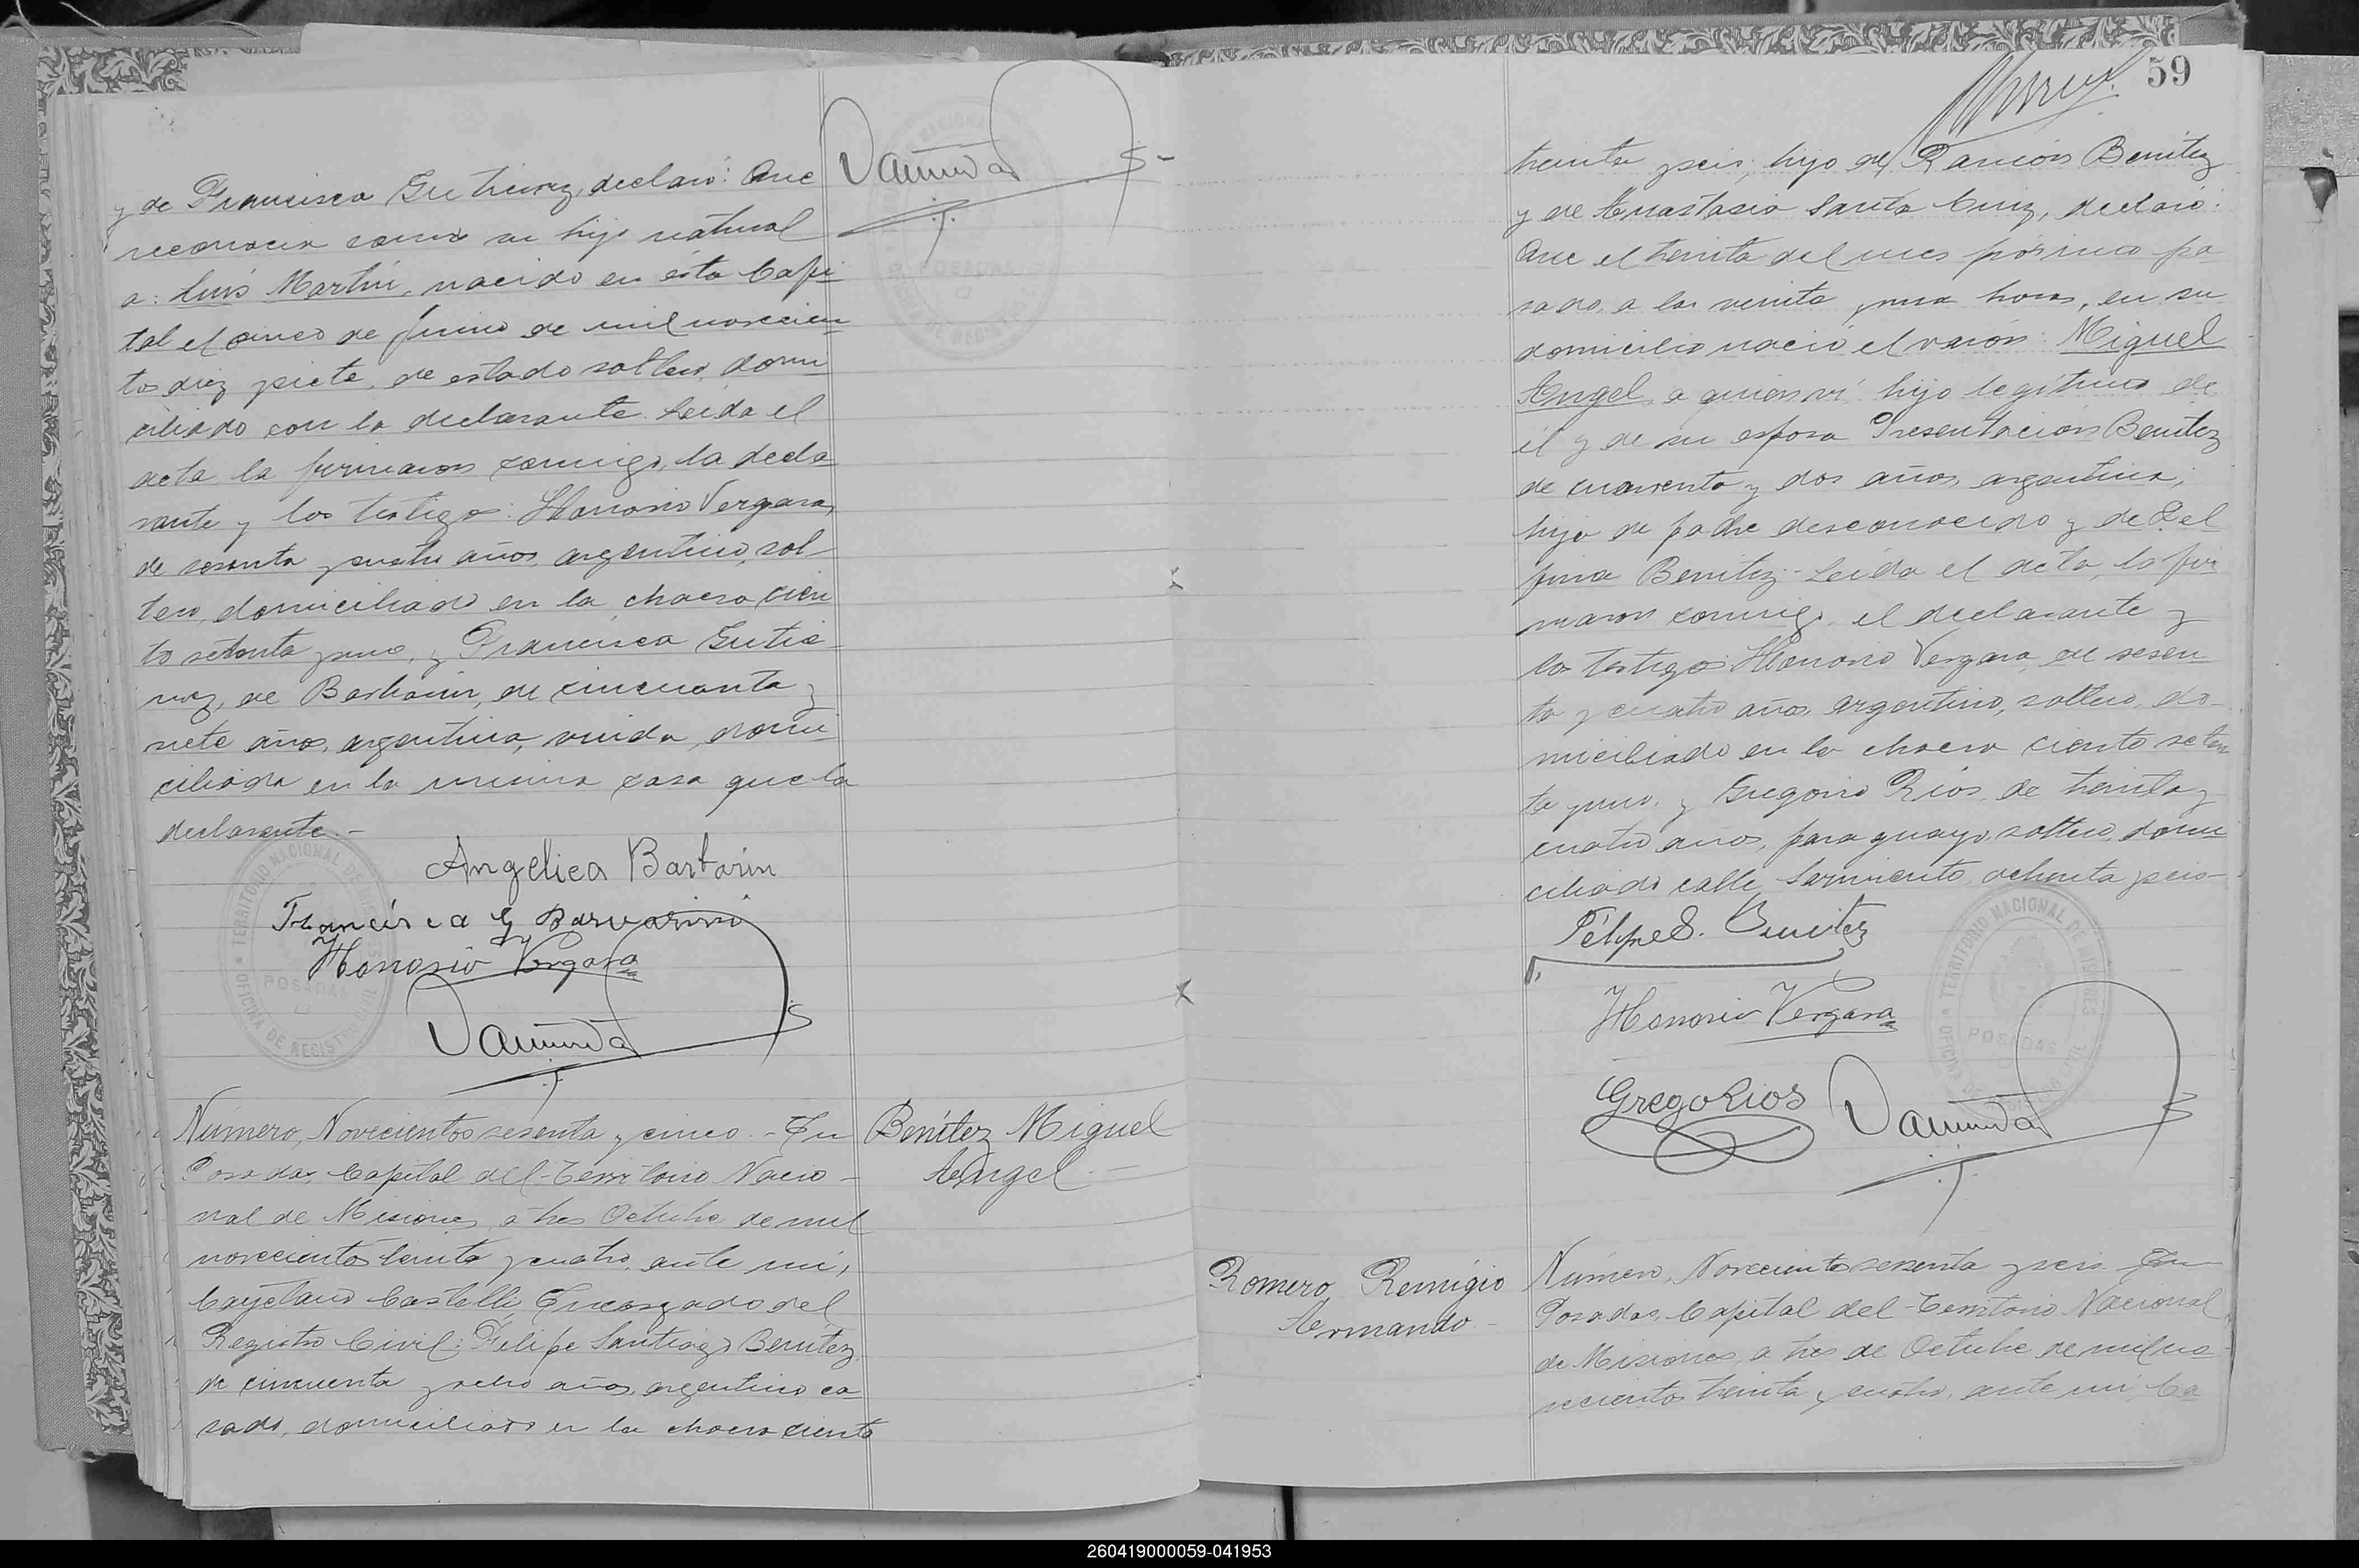 y de Francisca Gutierrez, declaró: Que
reconocia como su hijo natural
a: Luis Martin, nacido en ésta Capi
tal el cinco de Junio de mil novecien
tos diez y siete, de estado soltero, domi
ciliado con la declarante. Leida el
acta la firmaron conmigo, la decla
rante y los testigos: Honorio Vergara,
de sesenta y cuatro años, argentino, sol-
tero, domiciliado en la chacra cien
to setenta y uno, y Francisca Gutie-
rrez, de Bartarin, de cincuenta y
siete años, argentina, viuda, domi
ciliada en la misma casa que la
declarante.-
Angelica Bartarin
Francisca G
Honorio Vergara
Número, Novecientos sesenta y cinco.- En
Posadas, Capital del Territorio Nacio-
nal de Misiones, a tres Octubre de mil
novecientos treinta y cuatro, ante mi,
Cayetano Castelli, Encargado del
Registro Civil: Felipe Santiago Benitez,
de cincuenta y ocho años, argentino, ca
sado, domiciliado en la chacra ciento
Benítez Miguel
Angel.-
TERRITORIO NACIONAL DE MISIONES
OFICINA DE REGISTRO CIVIL
POSADAS
59
treinta y seis, hijo de Ramón Benitez
y de Anastasia Santa Cruz, declaró:
Que el treinta del mes próximo pa
sado, a las veinte y una horas, en su
domicilio nació el varón: Miguel
Angel, a quien ví, hijo legítimo de
él y de su esposa Presentación Benitez
de cuarenta y dos años, argentina,
hija de padre desconocido y de Del
fina Benitez.- Leida el acta, la fir
maron conmigo, el declarante y
los testigos: Honorio Vergara, de sesen
ta y cuatro años, argentino, soltero, do-
miciliado en la chacra ciento seten
ta y uno, y Gregorio Rios, de treinta y
cuatro anos, paraguayo, soltero, domi
ciliado calle Sarmiento, ochenta y seis-
Felipe S. Benitez
Honorio Vergara
Grego Rios
TERRITORIO NACIONAL DE MISIONES
POSADAS
Romero Remigio
Armando-
Número, Novecientos sesenta y seis. En
Posadas, Capital del Territorio Nacional
de Misiones, a tres de Octubre de mil no-
vecientos treinta y cuatro, ante mi, Ca
260419000059-041953